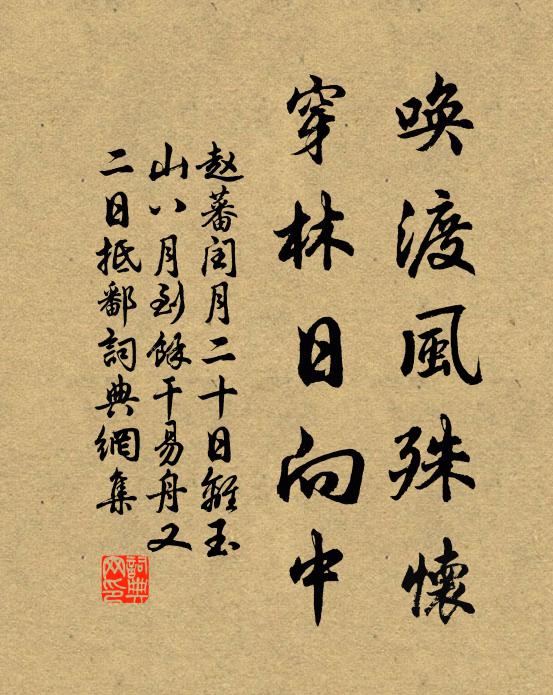 唤渡風殊懷
穿林日向中
赵蕃闰月二十日離玉
山八月到餘干易舟又
二日抵鄱詞典網集
詞典网印